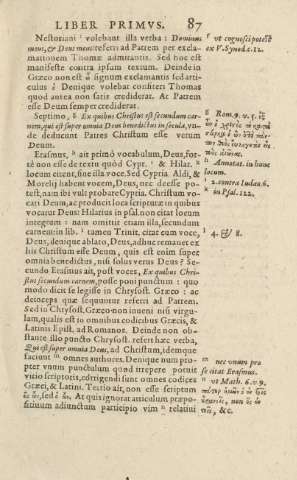 LIBER PRIMVS. 87
Nestoriani f volebant illa verba : Dominus
meus, & Deus meus referri ad Patrem per excla-
mationem Thomæ admirantis. Sed hoc est
manifeste contra ipsum textum. Deinde in
Græco non est ὦ signum exclamantis sed arti-
culus ὁ Denique volebat confiteri Thomas
quod antea non satis crediderat. At Patrem
esse Deum semper crediderat.
Septimo, g Ex quibus Christus est secundum car-
nem, qui est super omnia Deus benedictus in secula, vn-
de deducunt Patres Christum esse verum
Deum.
Erasmus, h ait primò vocabulum, Deus, for-
tè non esse de textu quòd Cypr. i & Hilar. k
locum citent, sine illa voce. Sed Cypria. Aldi, &
Morelij habent vocem, Deus, nec deesse po-
test, nam ibi vult probare Cypria. Christum vo-
cari Deum, ac producit loca scripturæ in quibus
vocatur Deus: Hilarius in psal. non citat locum
integrum : nam omittit etiam illa, secundum
carnem: in lib. l tamen Trinit. citat cum voce,
Deus, denique ablato, Deus, adhuc remanet ex
his Christum esse Deum, quis est enim super
omnia benedictus, nisi solus verus Deus? Se-
cundo Erasmus ait, post voces, Ex quibus Chri-
stus secundum carnem, posse poni punctum : quo
modo dicit se legisse in Chrysost. Græco : ac
deinceps quæ sequuntur referri ad Patrem.
Sed in Chrysost. Græco non inueni nisi virgu-
lam, qualis est in omnibus codicibus Græcis, &
Latinis Epist. ad Romanos. Deinde non ob-
stante illo puncto Chrysost. refert hæc verba,
Qui est super omnia Deus, ad Christum, idemque
faciunt m omnes authores. Denique num pro-
pter vnum punctulum quod irrepere potuit
vitio scriptoris, corrigendi sunt omnes codices
Græci, & Latini. Tertio ait, non esse scriptum
ὁς ὢν, sed ὁ ὢν. At quis ignorat articulum præpo-
sitiuum adiunctum participio vim n relatiui
f vt cognosci potest
ex V. Synod. c. 12.
g Rom. 9. v. 5.
h Annotat. in hunc
locum.
i 2. contra Iudæa 6.
k in Psal. 122.
l 4. & 8.
m nec vnum pro
se citat Erasmus.
n vt Math. 6. v. 9.
&c.